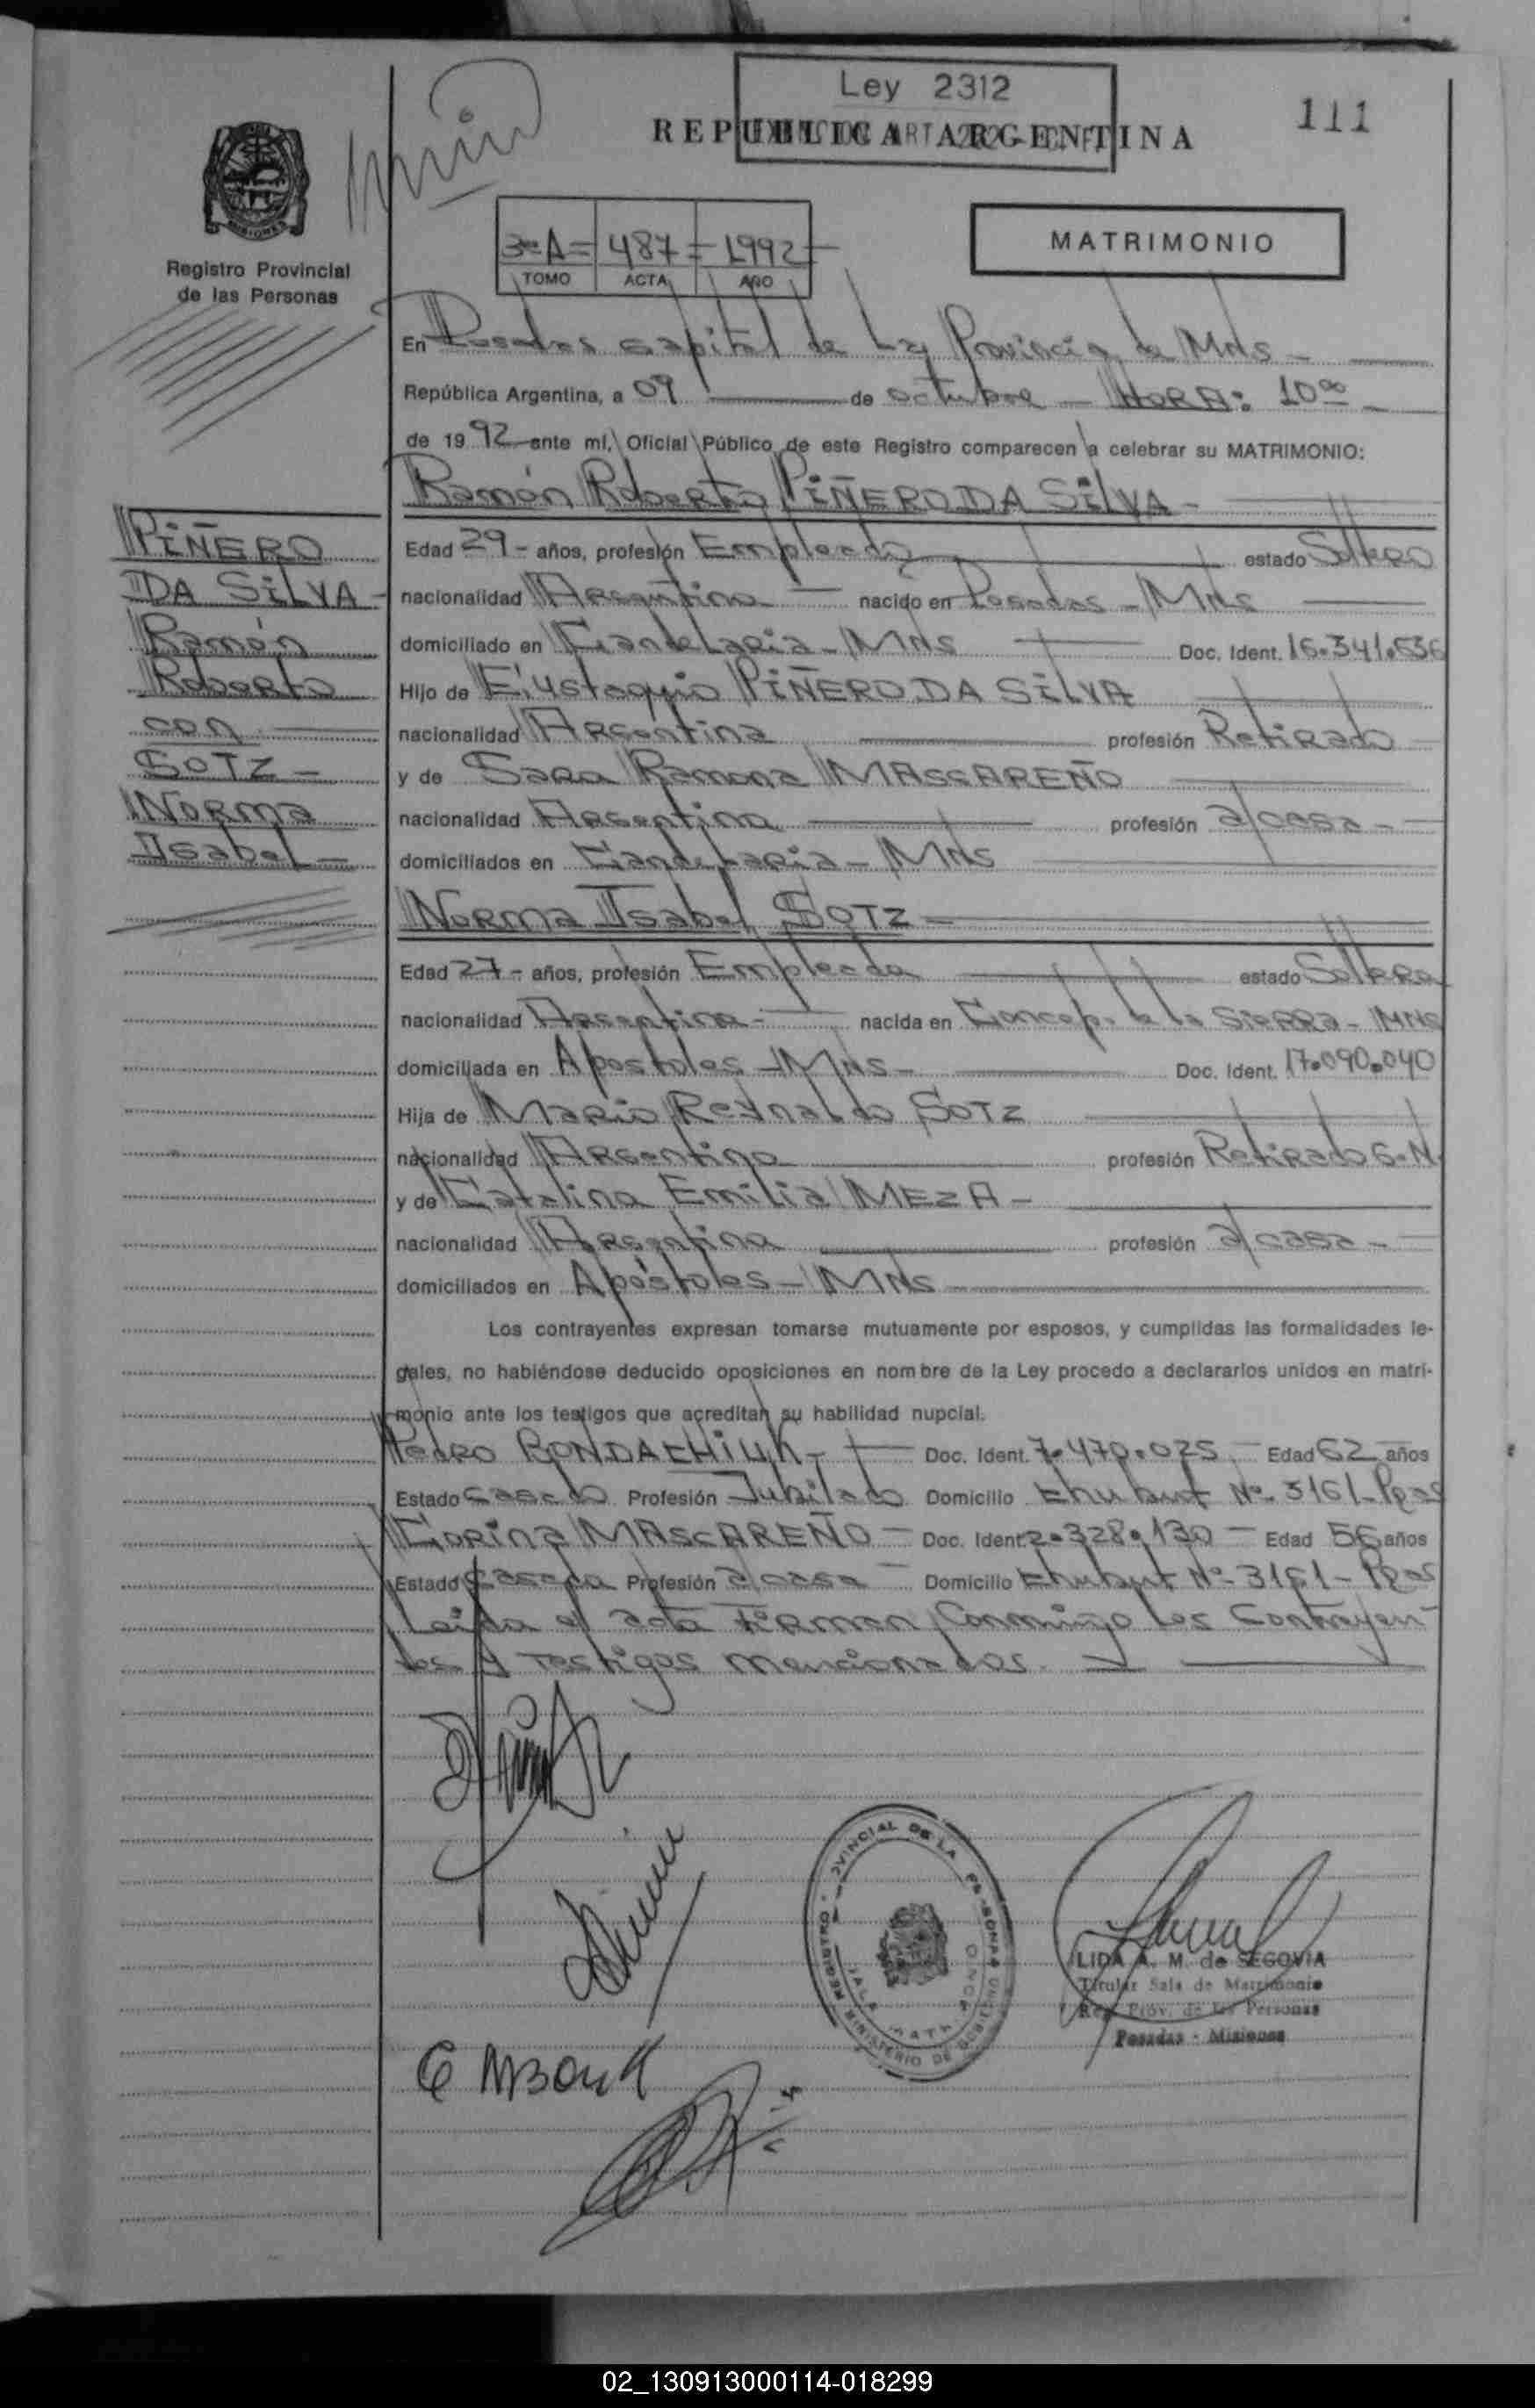 Ley 2312
REPUBLICA ARGENTINA
111
MISIONES
Registro Provincial
de las Personas
3=A= 487= 1992
TOMO ACTA AÑO
MATRIMONIO
En Posadas capital de la Provincia de Mns -
República Argentina, a 09 de octubre - HORA: 10 oo -
de 19 92 ante mí, Oficial Público de este Registro comparecen a celebrar su MATRIMONIO:
Ramón Roberto PIÑERO DA SILVA -
PIÑERO
DA SILVA -
Ramón
Roberto
con
SOTZ -
Norma
Isabel -
Edad 29 - años, profesión Empleado estado Soltero
nacionalidad Argentina - nacido en Posadas - Mns
domiciliado en Candelaria - Mns Doc. Ident. 16.341.636
Hijo de Eustaquio PIÑERO DA SILVA
nacionalidad Argentina profesión Retirado
y de Sara Ramona MASCAREÑO
nacionalidad Argentina profesión a/casa -
domiciliados en Candelaria - Mns
Norma Isabel SOTZ -
Edad 27 - años, profesión Empleada estado Soltera
nacionalidad Argentina - nacida en Concep. de la Sierra - Mns
domiciliada en Apostoles - Mns - Doc. Ident. 17.090.040
Hija de Mario Reynaldo SOTZ
nacionalidad Argentina profesión Retirado G.N.
y de Catalina Emilia MEZA -
nacionalidad Argentina profesión a/casa -
domiciliados en Apóstoles - Mns
Los contrayentes expresan tomarse mutuamente por esposos, y cumplidas las formalidades le-
gales, no habiéndose deducido oposiciones en nombre de la Ley procedo a declararlos unidos en matri-
monio ante los testigos que acreditan su habilidad nupcial.
Pedro BONDACHIUK - Doc. Ident. 7.470.025 - Edad 62 años
Estado casado Profesión Jubilado Domicilio Chubut Nº 3161 - Pdas
Corina MASCAREÑO - Doc. Ident. 2.328.130 - Edad 56 años
Estado Casada Profesión a/casa Domicilio Chubut Nº - 3161 - Pdas
Leída el acta Firman Conmigo los Contrayen-
tes y Testigos mencionados.
REGISTRO PROVINCIAL DE LA PERSONAS
MINISTERIO DE GOBIERNO
LIDA A. M. de SEGOVIA
Titular Sala de Matrimonio
Reg. Prov. de las Personas
Posadas - Misiones
02_130913000114-018299